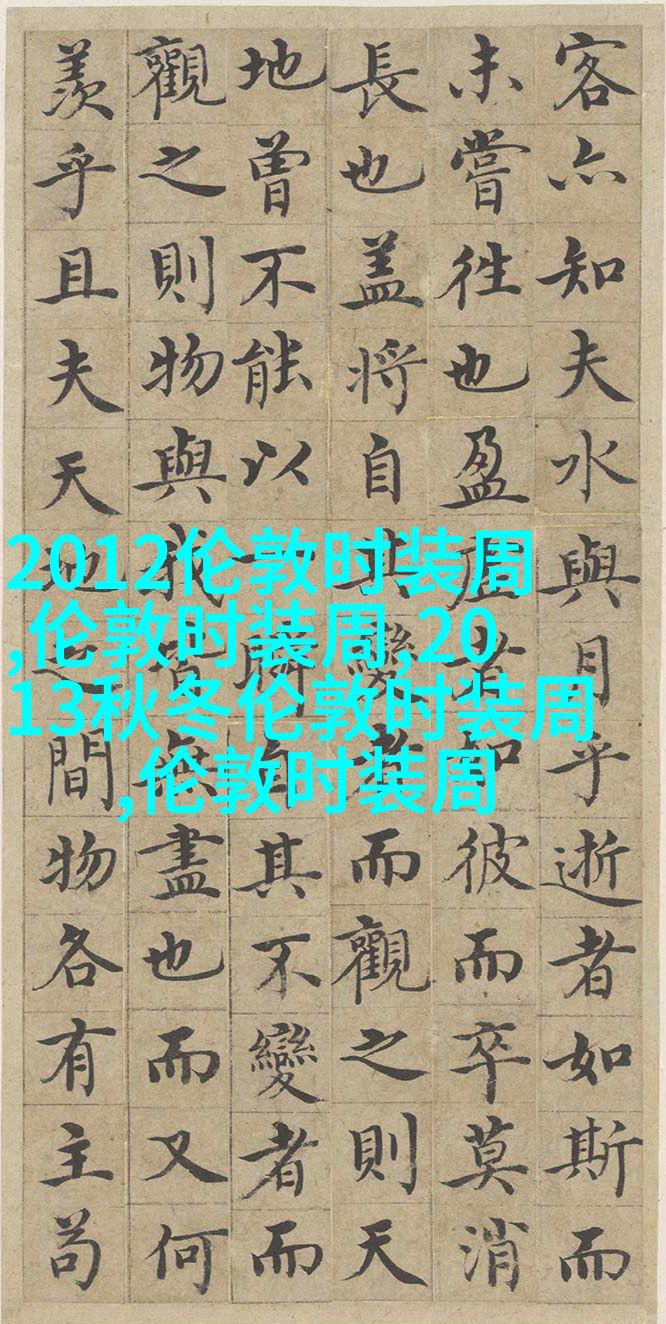 客亦知夫水與月乎逝者如斯而
未嘗往也盈虛者如彼而卒莫消
長也盖將自其變者而觀之則天
地曾不能以一瞬自其不變者而
觀之則物與我皆無盡也而又何
羨乎且夫天地之間物各有主苟
2012伦敦时装周
,伦敦时装周 20
13秋冬伦敦时装周
,伦敦时装周